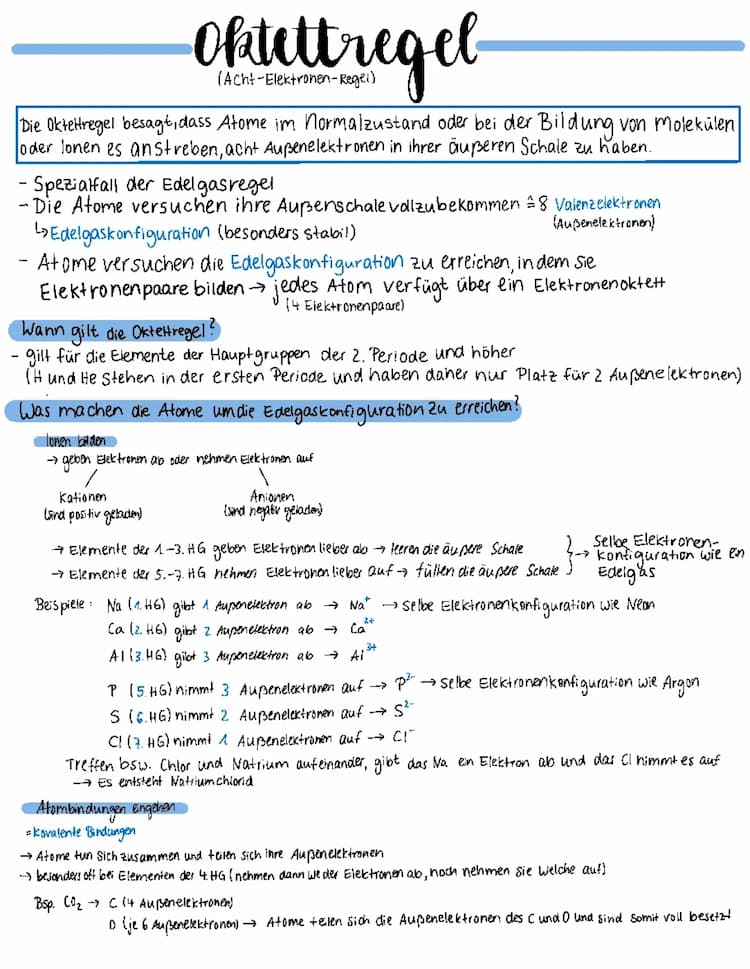 Oktettregel
(Acht-Elektronen-Regel)
Die Oktettregel besagt, dass Atome im Normalzustand oder bei der Bildung von Molekülen
oder Ionen es anstreben, acht Außenelektronen in ihrer äußeren Schale zu haben.
- Spezialfall der Edelgasregel
- Die Atome versuchen ihre Außenschale vollzubekommen ≙ 8 Valenzelektronen
(Außenelektronen)
↳ Edelgaskonfiguration (besonders stabil)
- Atome versuchen die Edelgaskonfiguration zu erreichen, in dem sie
Elektronenpaare bilden → jedes Atom verfügt über ein Elektronenoktett
(4 Elektronenpaare)
Wann gilt die Oktettregel?
- gilt für die Elemente der Hauptgruppen der 2. Periode und höher
(H und He stehen in der ersten Periode und haben daher nur Platz für 2 Außenelektronen)
Was machen die Atome um die Edelgaskonfiguration zu erreichen?
Ionen bilden
→ geben Elektronen ab oder nehmen Elektronen auf
Kationen Anionen
(sind positiv geladen) (sind negativ geladen)
→ Elemente der 1.-3. HG geben Elektronen lieber ab → leeren die äußere Schale
→ Elemente der 5.-7. HG nehmen Elektronen lieber auf → füllen die äußere Schale
→ Selbe Elektronen-
konfiguration wie ein
Edelgas
Beispiele: Na (1. HG) gibt 1 Außenelektron ab → Na⁺ → Selbe Elektronenkonfiguration wie Neon
Ca (2. HG) gibt 2 Außenelektron ab → Ca²⁺
Al (3. HG) gibt 3 Außenelektron ab → Al³⁺
P (5. HG) nimmt 3 Außenelektronen auf → P³⁻ → Selbe Elektronenkonfiguration wie Argon
S (6. HG) nimmt 2 Außenelektronen auf → S²⁻
Cl (7. HG) nimmt 1 Außenelektronen auf → Cl⁻
Treffen bsw. Chlor und Natrium aufeinander, gibt das Na ein Elektron ab und das Cl nimmt es auf
→ Es entsteht Natriumchlorid
Atombindungen eingehen
= Kovalente Bindungen
→ Atome tun sich zusammen und teilen sich ihre Außenelektronen
→ besonders oft bei Elementen der 4. HG (nehmen dann weder Elektronen ab, noch nehmen sie welche auf)
Bsp. CO₂ → C (4 Außenelektronen)
O (je 6 Außenelektronen) → Atome teilen sich die Außenelektronen des C und O und sind somit voll besetzt